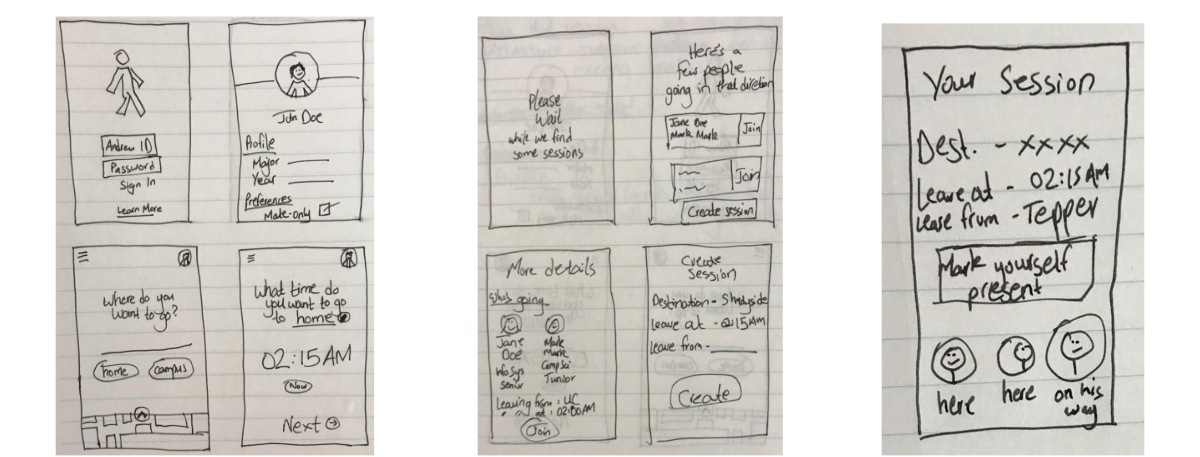 Andrew ID
Password
Sign In
Learn More
John Doe
Profile
Major
Year
Preferences
Male-only
Where do you
want to go?
home
campus
What time do
you want to go
to home
02:15 AM
Now
Next
Please
Wait
while we find
some sessions
Here's a
few people
going in that direction
Jane Doe
Mark Mark
Join
Join
Create session
More details
Who's going
Jane
Doe
InfoSys
Senior
Mark
Mark
CompSci
Junior
Leaving from : UC
" " at : 02:00 AM
Join
Create
Session
Destination - Shadyside
Leave at - 02:15AM
Leave from -
Create
Your Session
Dest. - xxxx
Leave at - 02:15 AM
Leave from - Tepper
Mark yourself
present
here
here
on his
way